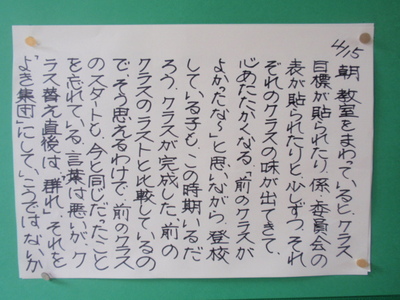 4/15
朝、教室をまわっていると、クラス
目標が貼られたり、係、委員会の
表が貼られたりと、少しずつ、それ
ぞれのクラスの味が出てきて、
心あたたかくなる。「前のクラスが
よかったな〜」と思いながら、登校
している子も、この時期いるだ
ろう。クラスが完成した、前の
クラスのラストと比較しているの
で、そう思えるわけで、前のクラス
のスタートも、今と同じだったこと
を忘れている。言葉は悪いが、ク
ラス替え直後は「群れ」。それを
「よき集団」にしていこうではないか